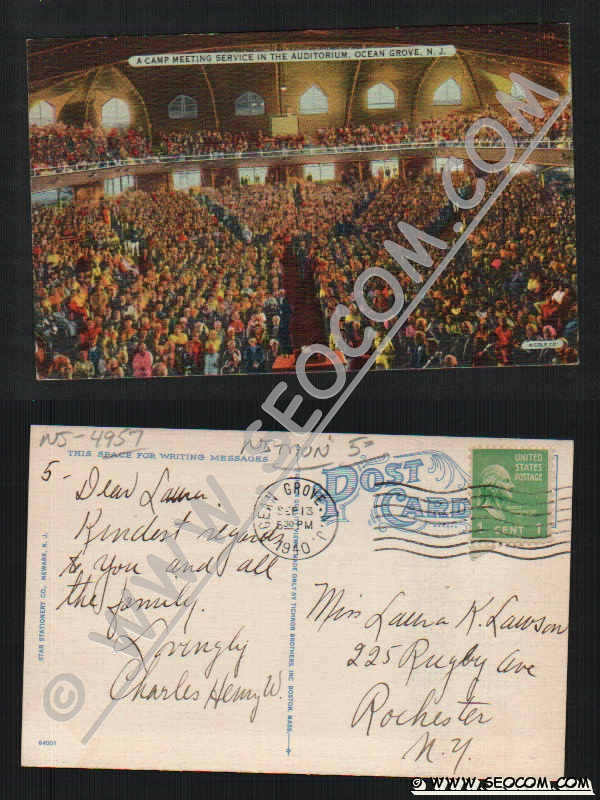 A CAMP MEETING SERVICE IN THE AUDITORIUM, OCEAN GROVE, N. J.
© WWW.SEOCOM.COM
NJ-4957
5-
THIS SPACE FOR WRITING MESSAGES
POST CARD
UNITED STATES POSTAGE
1 CENT 1
OCEAN GROVE, N.J.
SEP 13
1940
Dear Laura.
Kindest regards
to you and all
the family.
Lovingly
Charles Henry W.
STAR STATIONERY CO., NEWARK, N. J.
MADE ONLY BY TICHNOR BROTHERS, INC. BOSTON, MASS.
Miss Laura K. Lawson
225 Rugby Ave
Rochester
N.Y.
64001
© WWW.SEOCOM.COM